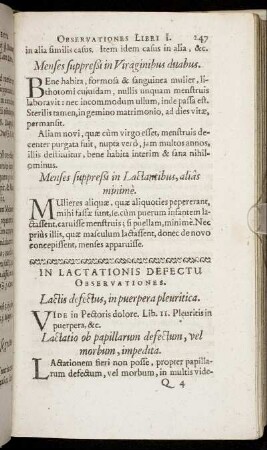 OBSERVATIONES LIBRI I. 247
in alia similis casus. Item idem casus in alia, &c.
Menses suppressi in Viraginibus duabus.
BEne habita, formosa & sanguinea mulier, li-
thotomi cujusdam, nullis unquam menstruis
laboravit: nec incommodum ullum, inde passa est.
Sterilis tamen, in gemino matrimonio, ad dies vitæ,
permansit.
Aliam novi, quæ cùm virgo esset, menstruis de-
center purgata fuit, nupta verò, jam multos annos,
illis destituitur, bene habita interim & sana nihil-
ominus.
Menses suppressi in Lactantibus, aliàs
minimè.
MUlieres aliquæ, quæ aliquoties pepererant,
mihi fassæ sunt, se, cùm puerum infantem la-
ctassent, caruisse menstruis; si puellam, minimè. Nec
priùs illis, quæ masculum lactassent, donec de novo
concepissent, menses apparuisse.
IN LACTATIONIS DEFECTU
OBSERVATIONES.
Lactis defectus, in puerpera pleuritica.
VIDE in Pectoris dolore. Lib. II. Pleuritis in
puerpera, &c.
Lactatio ob papillarum defectum, vel
morbum, impedita.
LActationem fieri non posse, propter papilla-
rum defectum, vel morbum, in multis vide-
Q 4